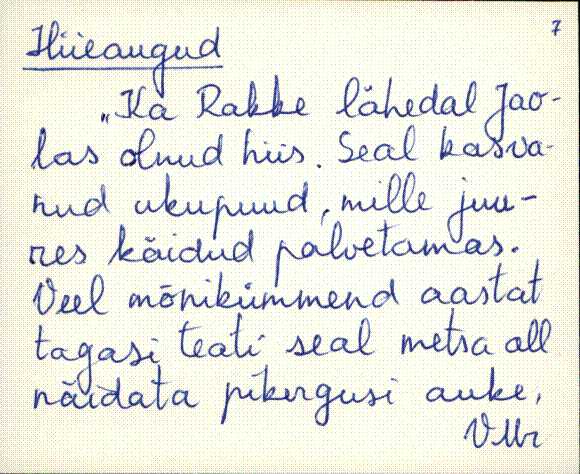 7
Hiieaugud
„Ka Rakke lähedal Jao-
las olnud hiis. Seal kasva-
nud ukupuud, mille juu-
res käidud palvetamas.
Veel mõnikümmend aastat
tagasi teati seal metsa all
näidata pikergusi auke,